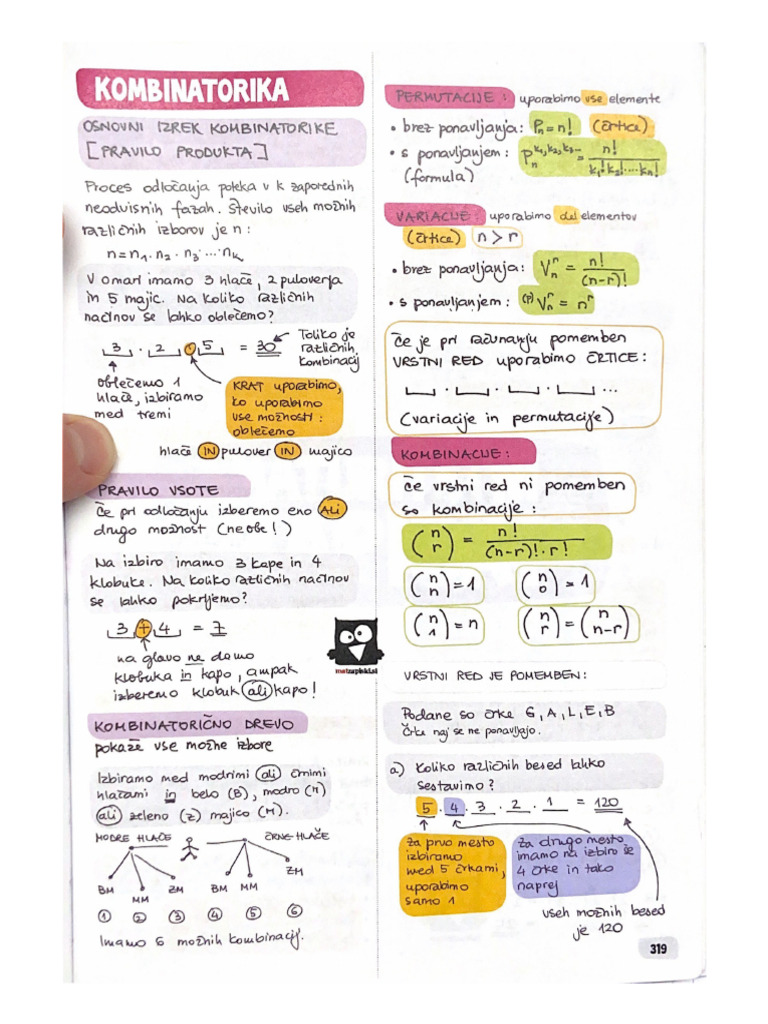 KOMBINATORIKA
OSNOVNI IZREK KOMBINATORIKE
[PRAVILO PRODUKTA]
Proces odločanja poteka v k zaporednih
neodvisnih fazah. Število vseh možnih
različnih izborov je n:
n=n₁·n₂·n₃·...·nₖ
V omari imamo 3 hlače, 2 puloverja
in 5 majic. Na koliko različnih
načinov se lahko oblečemo?
3 · 2 · 5 = 30
Toliko je
različnih
kombinacij
oblečemo 1
hlače, izbiramo
med tremi
KRAT uporabimo,
ko uporabimo
vse možnosti:
oblečemo
hlače IN pulover IN majico
PRAVILO VSOTE
Če pri odločanju izberemo eno ALI
drugo možnost (ne obe!)
Na izbiro imamo 3 kape in 4
klobuke. Na koliko različnih načinov
se lahko pokrijemo?
3 + 4 = 7
na glavo ne damo
klobuka in kapo, ampak
izberemo klobuk ali kapo!
KOMBINATORIČNO DREVO
pokaže vse možne izbore
Izbiramo med modrimi ali črnimi
hlačami in belo (B), modro (M)
ali zeleno (Z) majico (M).
MODRE HLAČE ČRNE HLAČE
BM MM ZM BM MM ZM
1 2 3 4 5 6
Imamo 6 možnih kombinacij.
PERMUTACIJE: uporabimo vse elemente
• brez ponavljanja: Pₙ = n! (črtice)
• s ponavljanjem: Pₙ^(k₁,k₂,k₃...) = n! / (k₁!k₂!·...·kₙ!)
(formula)
VARIACIJE: uporabimo del elementov
(črtice) n > r
• brez ponavljanja: Vₙʳ = n! / (n-r)!
• s ponavljanjem: ⁽ᵖ⁾Vₙʳ = nʳ
Če je pri računanju pomemben
VRSTNI RED uporabimo ČRTICE:
__ · __ · __ · __ ...
(variacije in permutacije)
KOMBINACIJE:
če vrstni red ni pomemben
so kombinacije:
(n r) = n! / ((n-r)!·r!)
(n n) = 1 (n 0) = 1
(n 1) = n (n r) = (n n-r)
matzapiski.si
VRSTNI RED JE POMEMBEN:
Podane so črke G, A, L, E, B
Črke naj se ne ponavljajo.
a) Koliko različnih besed lahko
sestavimo?
5 · 4 · 3 · 2 · 1 = 120
Za prvo mesto
izbiramo
med 5 črkami,
uporabimo
samo 1
Za drugo mesto
imamo na izbiro še
4 črke in tako
naprej
vseh možnih besed
je 120
319